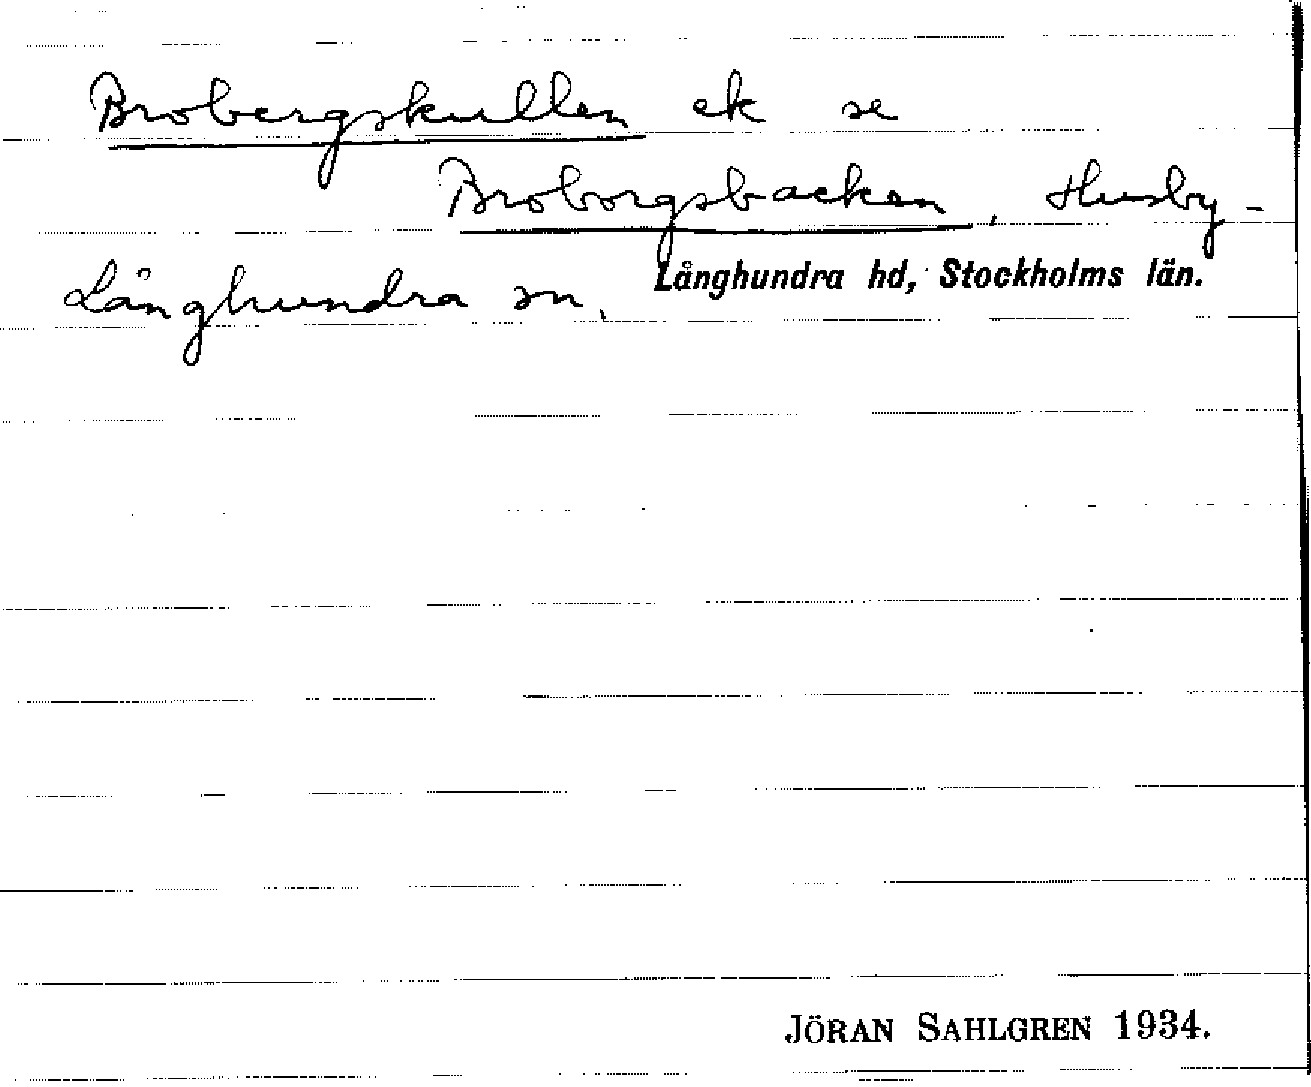 Brobergskullen ek se
Broborgsbacken, Husby-
Långhundra sn, Långhundra hd, Stockholms län.
JÖRAN SAHLGREN 1934.